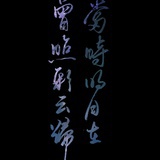 當時明月在
曾照彩雲歸